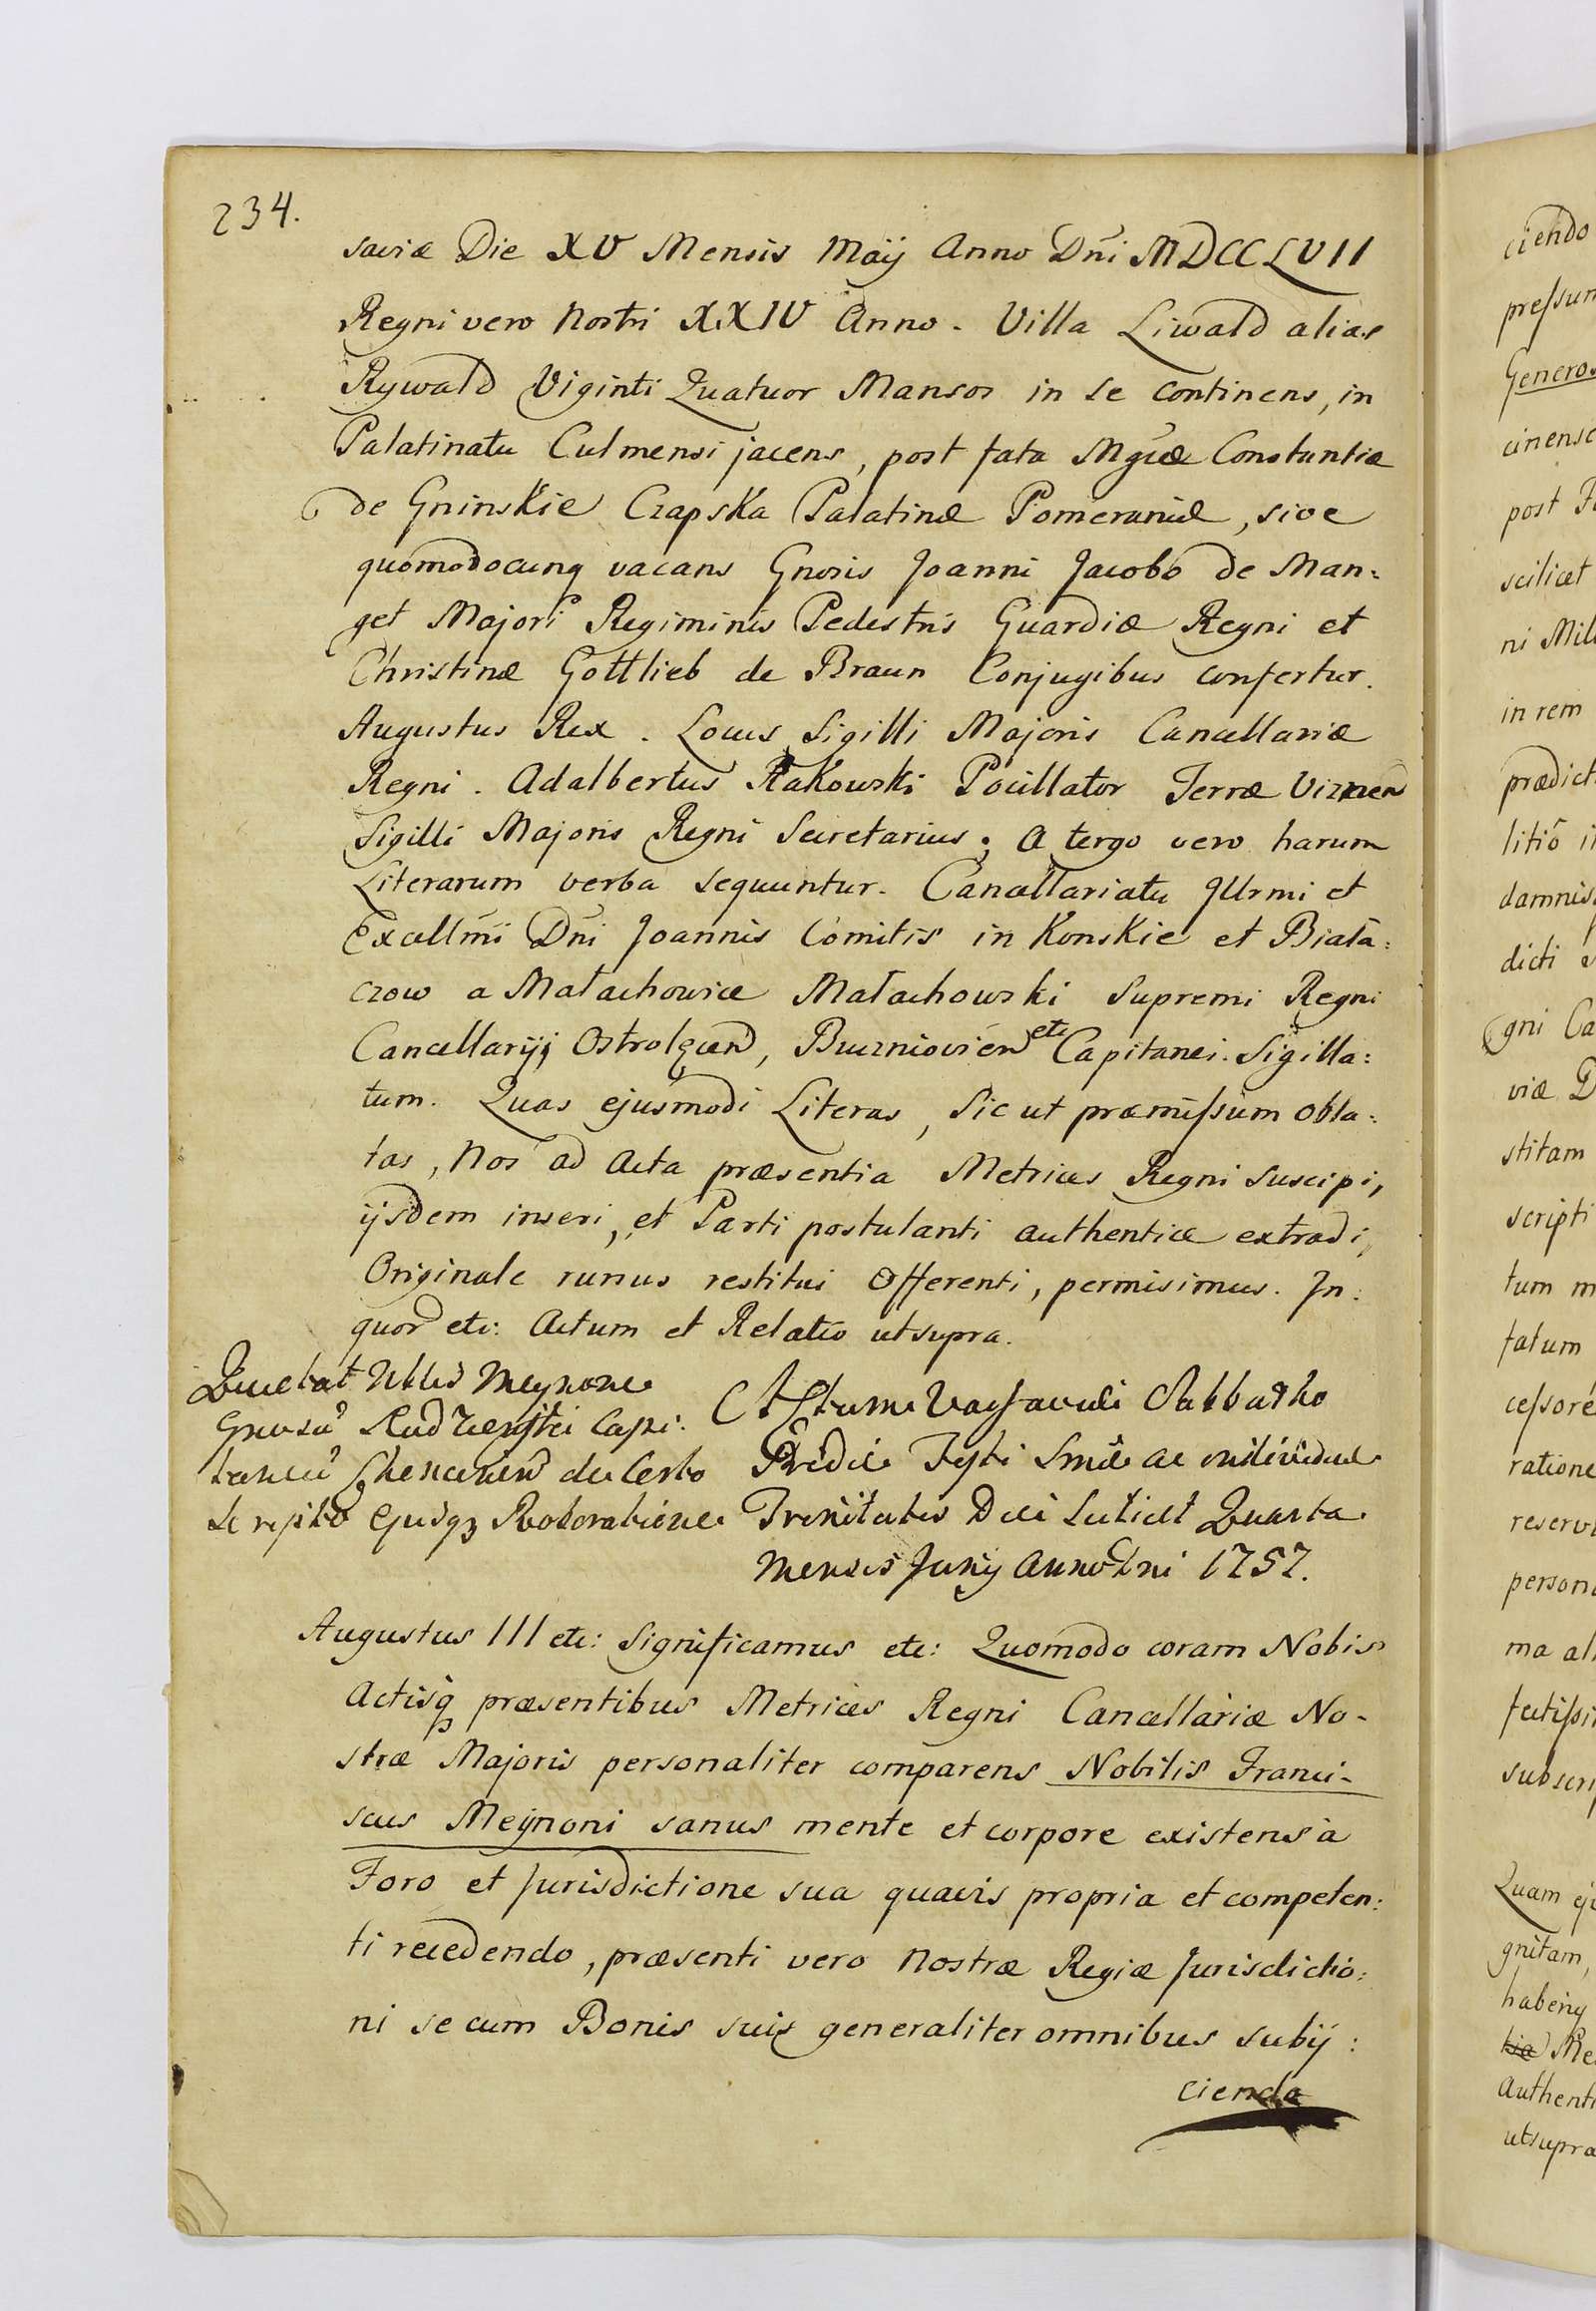 234.
saviæ Die XV Mensis Maij Anno Dñi MDCCLVII
Regni vero Nostri XXIV Anno. Villa Liwald alias
Rywald Viginti Quatuor Mansos in se continens, in
Palatinatu Culmensi jacens, post fata Mgcæ Constantiæ
de Gninskie Czapska Palatinæ Pomeraniæ, sive
quomodocunq vacans Gnosis Joanni Jacobo de Man:
get Majori Regiminis Pedestris Guardiæ Regni et
Christinæ Gottlieb de Braun Conjugibus confertur.
Augustus Rex. Locus Sigilli Majoris Cancellariæ
Regni. Adalbertus Rakowski Pocillator Terræ Viznen
Sigilli Majoris Regni Secretarius; A tergo vero harum
Literarum verba sequuntur. Cancellariatu Illrmi et
Excellmi Dñi Joannis Comitis in Konskie et Biała:
czow a Małachowice Małachowski Supremi Regni
Cancellarij, Ostrołęcen, Buczniovien etc Capitanei. Sigilla:
tum. Quas ejusmodi Literas, Sic ut præmissum obla:
tas, Nos ad Acta præsentia Metrices Regni suscipi,
ijsdem inseri, et Parti postulanti authentice extradi,
Originale rursus restitui Offerenti, permisimus. In
quor etc: Actum et Relatio ut supra.
Quietat Nblis Meynone
Gnosu Rudzienski Capi:
taneu Chencinen de Certo
scripto Ejusqz Roboratione
Actum Varsaviæ Sabbatho
Pridie Festi Smæ ac individuæ
Trinitatis Die scilicet Quarta
Mensis Junij Anno Dni 1757.
Augustus III etc: Significamus etc: Quomodo coram Nobis
Actisq præsentibus Metrices Regni Cancellariæ No-
stræ Majoris personaliter comparens Nobilis Franci-
scus Meynoni sanus mente et corpore existens à
Foro et Jurisdictione sua quavis propria et competen:
ti recedendo, præsenti vero Nostræ Regiæ Jurisdictio:
ni se cum Bonis suis generaliter omnibus subij:
ciendo
ciendo
pressum
Generos
cinense
post
scilicet
ni Mil
in rem
prædict
litiō
damnis
dicti
gni Ca
viæ D
stitam
scripti
tum m
tatum
cessoré
ratione
reserv
person
ma al
fectissi
subscri
Quam ej
gnitam,
habenq
Me
Authenti
utsupra